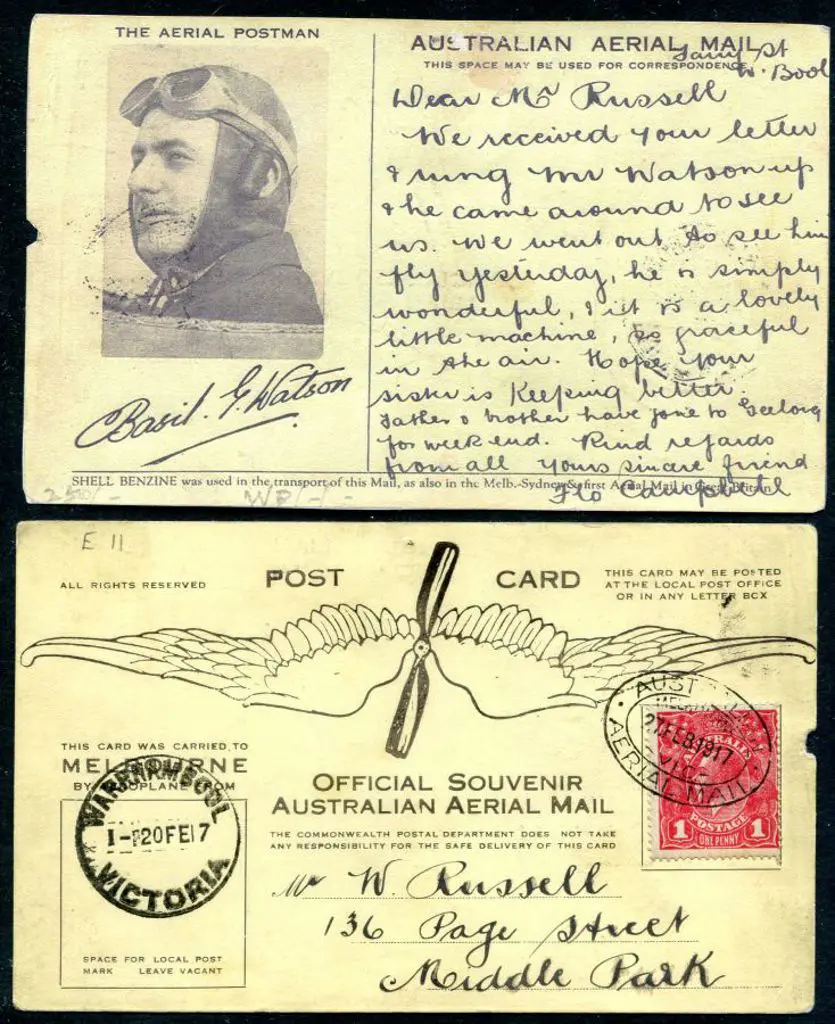 THE AERIAL POSTMAN
Basil. G. Watson
AUSTRALIAN AERIAL MAIL
THIS SPACE MAY BE USED FOR CORRESPONDENCE
St
W. Bool
Dear Mr Russell
We received your letter
& rung Mr Watson up
& he came around to see
us. We went out to see him
fly yesterday, he is simply
wonderful, & it is a lovely
little machine, so graceful
in the air. Hope your
sister is keeping better.
Father & brother have gone to Geelong
for week end. Kind regards
from all yours sincere friend
Flo Campbell
SHELL BENZINE was used in the transport of this Mail, as also in the Melb.-Sydney & first Aerial Mail in Great Britain
E 11
ALL RIGHTS RESERVED
POST CARD
THIS CARD MAY BE POSTED
AT THE LOCAL POST OFFICE
OR IN ANY LETTER BOX
AUST
27 FEB 1917
AERIAL MAIL
POSTAGE
1 ONE PENNY 1
THIS CARD WAS CARRIED TO
MELBOURNE
BY AEROPLANE FROM
WARRNAMBOOL
20 FE 17
VICTORIA
SPACE FOR LOCAL POST
MARK LEAVE VACANT
OFFICIAL SOUVENIR
AUSTRALIAN AERIAL MAIL
THE COMMONWEALTH POSTAL DEPARTMENT DOES NOT TAKE
ANY RESPONSIBILITY FOR THE SAFE DELIVERY OF THIS CARD
Mr W. Russell
136 Page Street
Middle Park